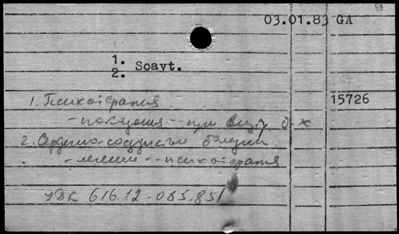 03.01.83 GA
1.
2. Soavt.
15726
1. Психотерапия
- показания - при
2. Сердечно-сосудистые болезни
- лечение - психотерапия
УДК 616.12-085.851